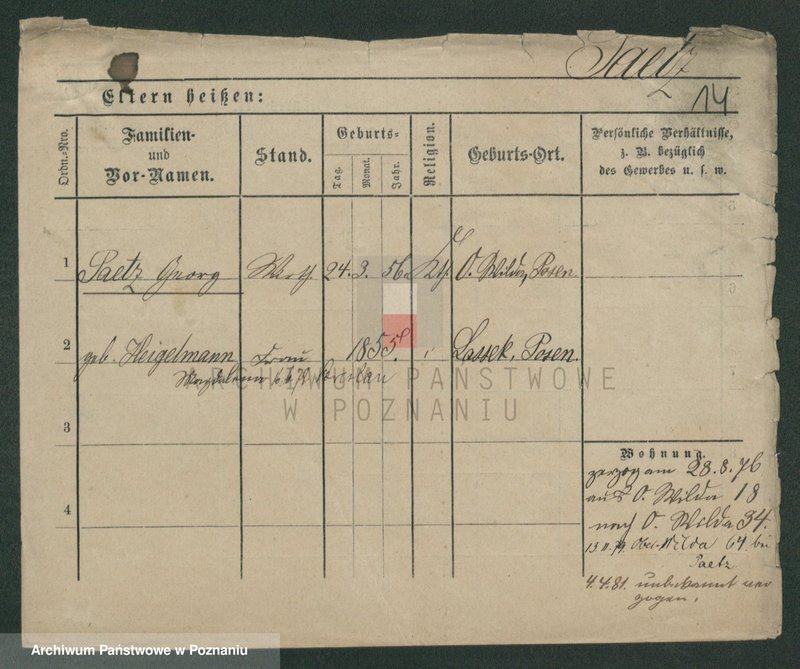 Paetz
14
Eltern heißen:
Ordn.-Nro.
Familien-
und
Vor-Namen.
Stand.
Geburts-
Tag.
Monat.
Jahr.
Religion.
Geburts-Ort.
Persönliche Verhältnisse,
z. B. bezüglich
des Gewerbes u. s. w.
1 Paetz Georg Wirth. 24. 3. 56 Kth. O. Wilda, Posen.
2 geb. Heigelmann Frau 1855 Lassek, Posen.
Magdalena
3
4
ARCHIWUM PAŃSTWOWE
W POZNANIU
Wohnung.
verzog am 28.8.76
aus O. Wilda 18
nach O. Wilda 34.
13 11. 79. Ober-Wilda 64 bei
Paetz
4.4.81. unbekannt ver
zogen.
Archiwum Państwowe w Poznaniu